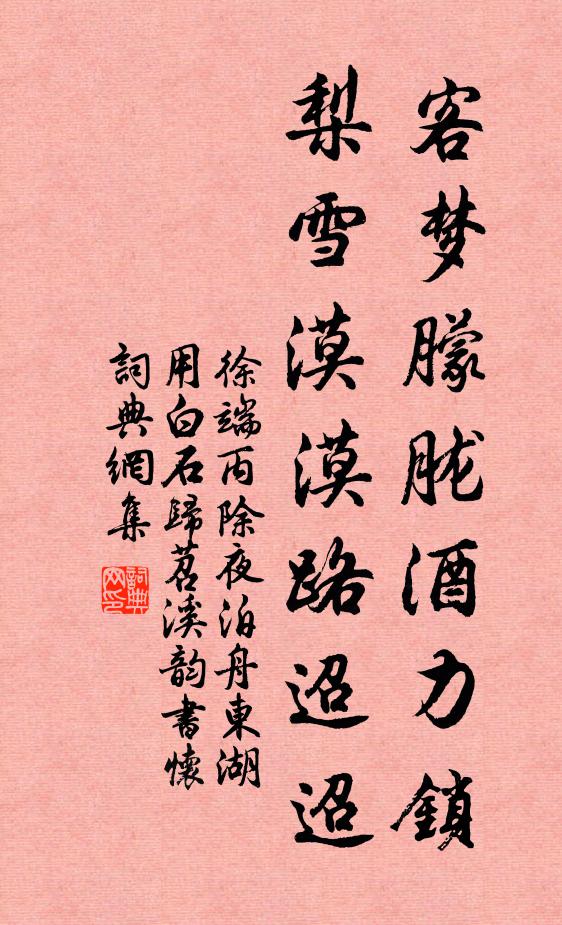 客梦朦胧酒力鎖
梨雪漠漠路迢迢
徐端丙除夜泊舟東湖
用白石歸苕溪韵書懷
詞典網集
詞典网印